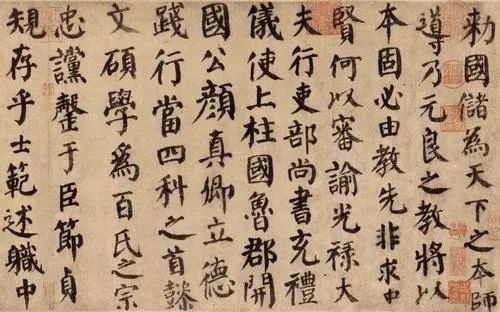 勑國儲為天下之本師
導乃元良之教將以
本固必由教先非求中
賢何以審諭光祿大
夫行吏部尚書充禮
儀使上柱國魯郡開
國公顏真卿立德
踐行當四科之首懿
文碩學為百氏之宗
忠讜罄于臣節貞
規存乎士範述職中